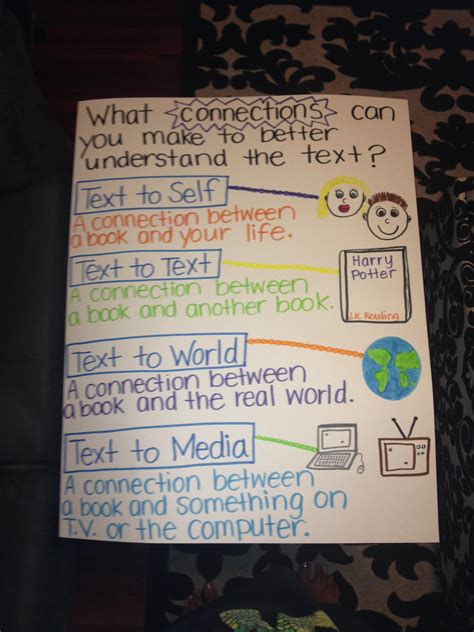 What connections can
you make to better
understand the text?
Text to Self
A connection between
a book and your life.
Text to Text
A connection between
a book and another book.
Harry
Potter
J.K. Rowling
Text to World
A connection between
a book and the real world.
Text to Media
A connection between
a book and something on
T.V. or the computer.